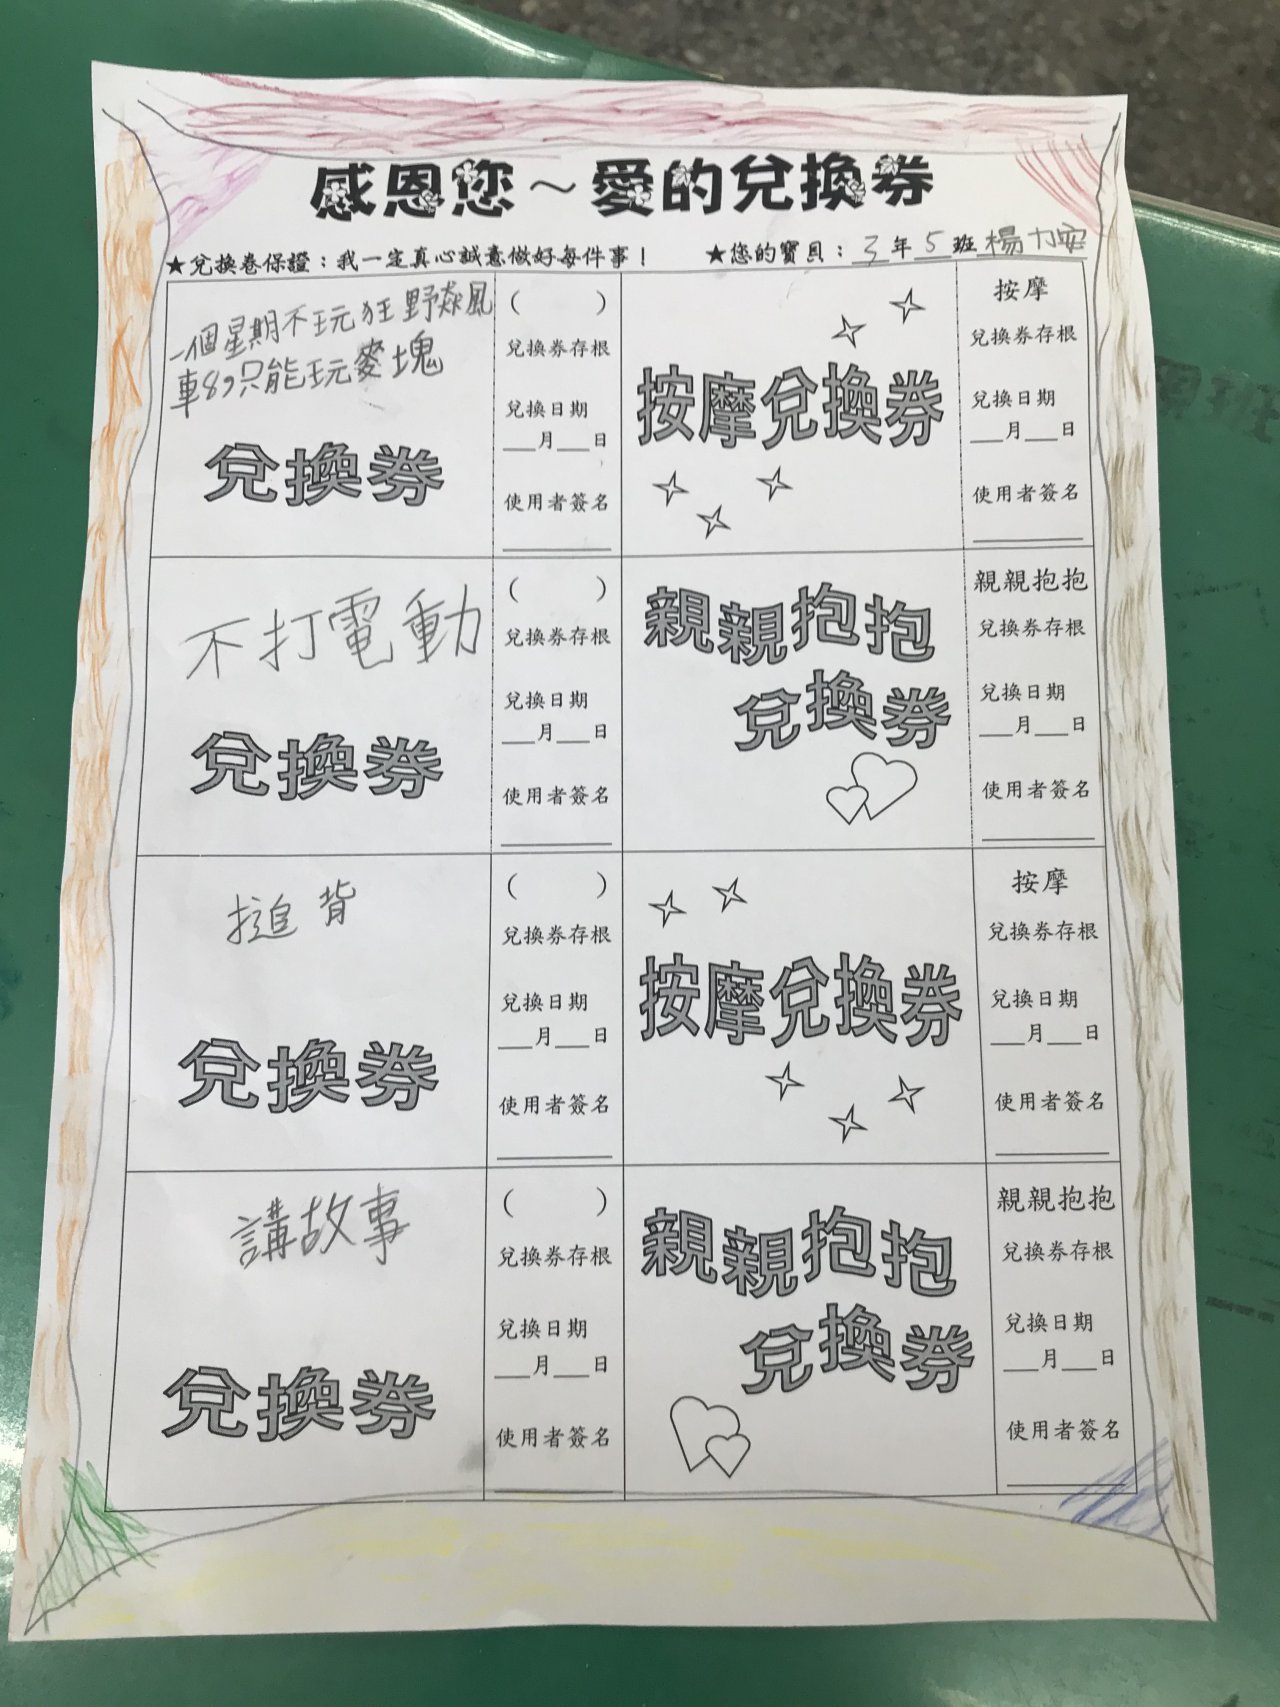 感恩您～愛的兌換券
★兌換卷保證：我一定真心誠意做好每件事！ ★您的寶貝：3年5班楊力安
一個星期不玩狂野飆風
車89只能玩麥塊
兌換券
（ ）
兌換券存根
兌換日期
__月__日
使用者簽名
按摩兌換券
按摩
兌換券存根
兌換日期
__月__日
使用者簽名
不打電動
兌換券
（ ）
兌換券存根
兌換日期
__月__日
使用者簽名
親親抱抱
兌換券
親親抱抱
兌換券存根
兌換日期
__月__日
使用者簽名
搥背
兌換券
（ ）
兌換券存根
兌換日期
__月__日
使用者簽名
按摩兌換券
按摩
兌換券存根
兌換日期
__月__日
使用者簽名
講故事
兌換券
（ ）
兌換券存根
兌換日期
__月__日
使用者簽名
親親抱抱
兌換券
親親抱抱
兌換券存根
兌換日期
__月__日
使用者簽名